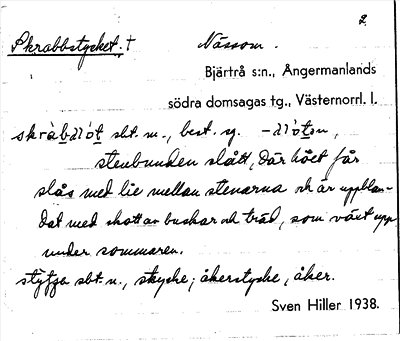 2
Skrabbstycket. † Nässom.
Bjärtrå s:n., Ångermanlands
södra domsagas tg., Västernorrl. l.
sbt. n., best. sg.
stenbunden slått, där höet får
slås med lie mellan stenarna och är uppblan-
dat med skott av buskar och träd, som växt upp
under sommaren.
sbt. n., stycke; åkerstycke, åker.
Sven Hiller 1938.